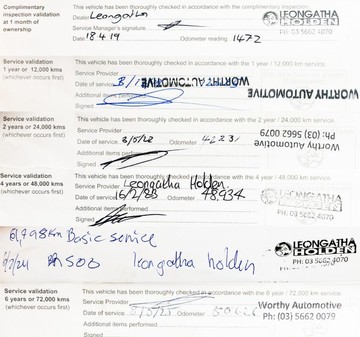 Complimentary
inspection
validation
at 1 month
ownership
This vehicle has been thoroughly checked in accordance with the complimentary
Dealer Leongatha
Service Manager's signature
Date 18 4 19 Odometer reading 1472
LEONGATHA
HOLDEN
PH: 03 5662 4070
Service validation
1 year or 12,000 kms
(whichever occurs first)
This vehicle has been thoroughly checked in accordance with the 1 year / 12,000 km
Service Provider
Date of service
Additional items
Signed
WORTHY AUTOMOTIVE
WORTHY AUTOMOTIVE
Service validation
2 years or 24,000 kms
(whichever occurs first)
This vehicle has been thoroughly checked in accordance with the 2 year / 24,000 km
Service Provider
Date of service Odometer 42231
Additional items performed
Signed
Worthy Automotive
Ph: (03) 5662 0079
Service validation
4 years or 48,000 kms
(whichever occurs first)
This vehicle has been thoroughly checked in accordance with the 4 year / 48,000 km
Service Provider Leongatha Holden
Date of service Odometer 48,934
Additional items performed
Signed
LEONGATHA
HOLDEN
PH: 03 5662 4070
Basic service
leongatha holden
LEONGATHA
HOLDEN
PH: 03 5662 4070
Service validation
6 years or 72,000 kms
(whichever occurs first)
This vehicle has been thoroughly checked in accordance with the 6 year / 72,000 km
Service Provider
Date of service Odometer
Additional items performed
Signed
Worthy Automotive
Ph: (03) 5662 0079